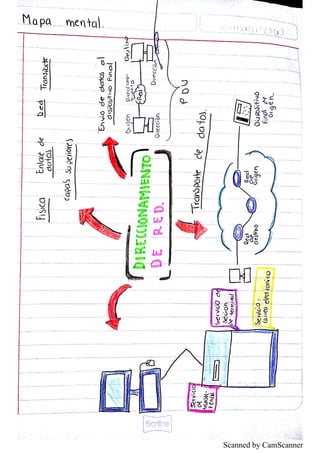 Mapa mental.
Física
Enlace de
datos
Red
Transporte
Capas superiores
Envio de datos al
dispositivo final
Origen
Destino
Red
Dirección
Dirección
PDU
DIRECCIONAMIENTO
DE RED.
Transporte de datos.
Dispositivo
final de
origen.
Red
de
origen
Red
de
destino
Servicio de
sesión
de terminal
Servicio:
correo electronico
Servicio
de
Scribe
Scanned by CamScanner